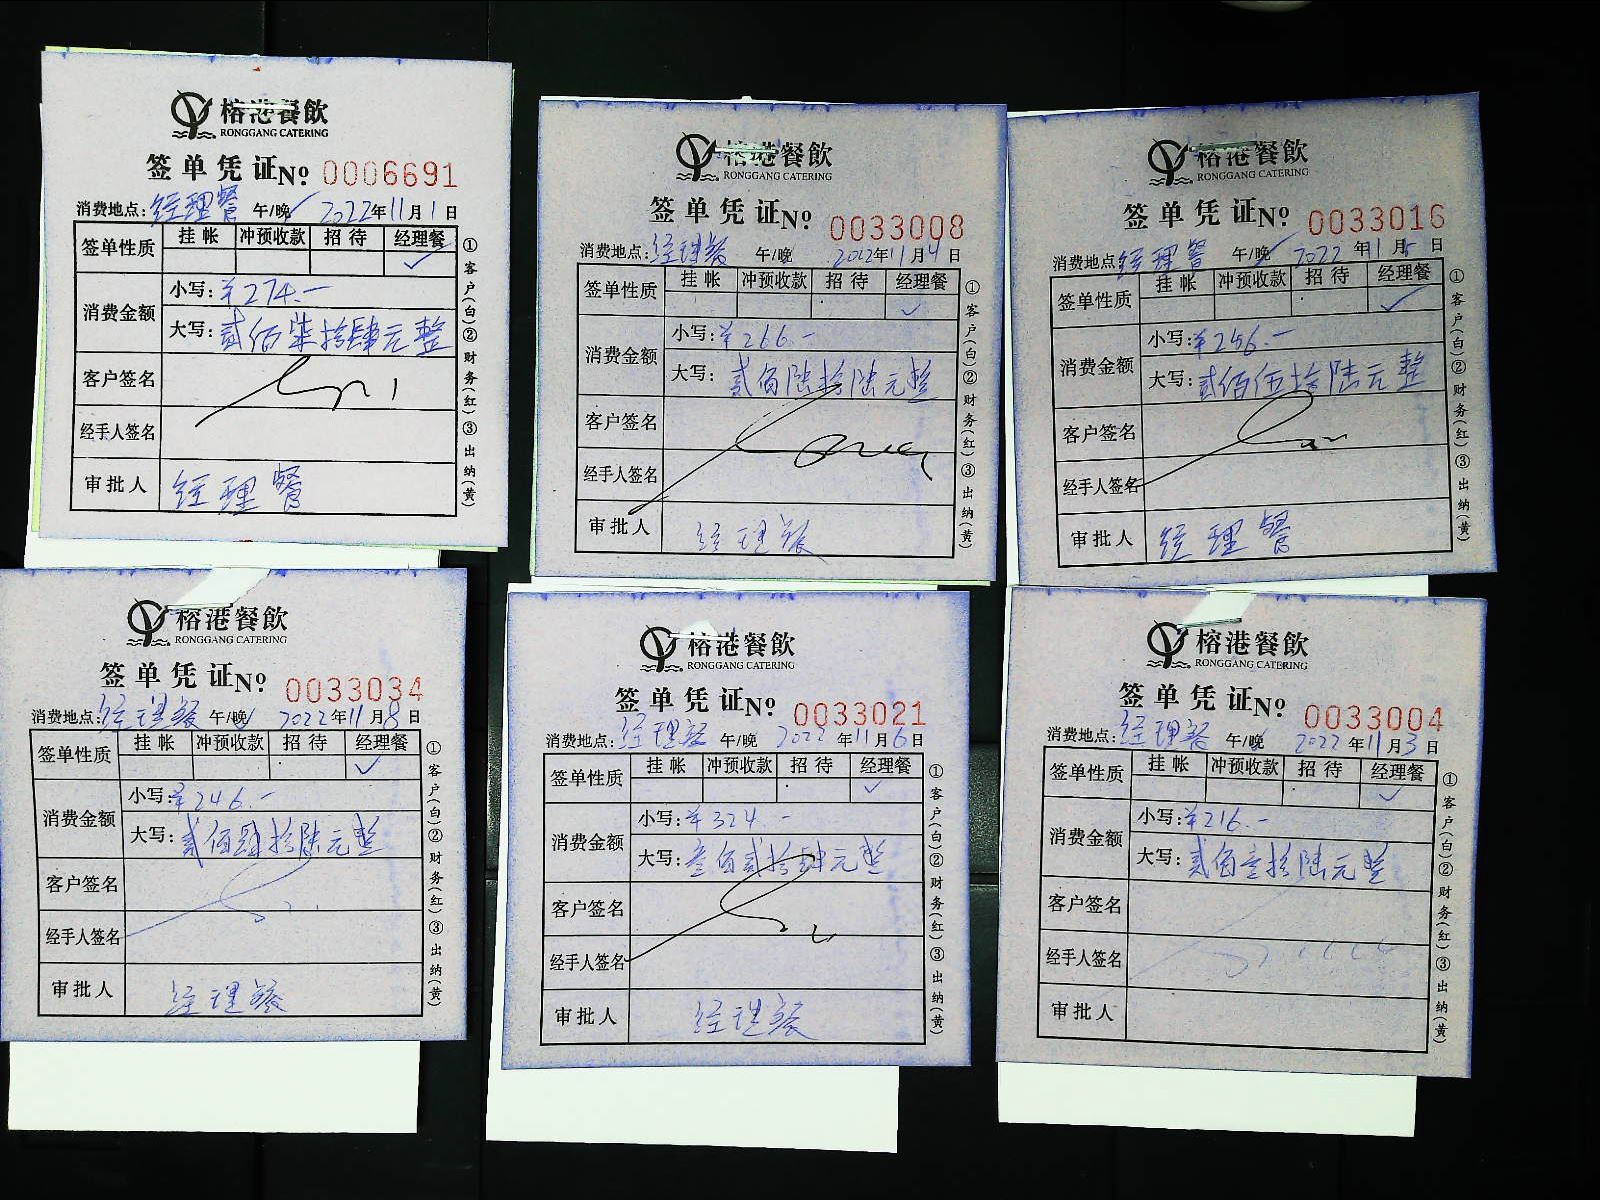 榕港餐飲
RONGGANG CATERING
签单凭证No 0006691
消费地点:经理餐 午/晚✓ 2022年11月1日
签单性质 挂帐 冲预收款 招待 经理餐
✓
消费金额
小写:¥274.-
大写:贰佰柒拾肆元整
客户签名
经手人签名
审批人 经理餐
①客户(白)②财务(红)③出纳(黄)
榕港餐飲
RONGGANG CATERING
签单凭证No 0033008
消费地点:经理餐 午/晚 2022年11月4日
签单性质 挂帐 冲预收款 招待 经理餐
✓
消费金额
小写:¥266.-
大写:贰佰陆拾陆元整
客户签名
经手人签名
审批人 经理餐
①客户(白)②财务(红)③出纳(黄)
榕港餐飲
RONGGANG CATERING
签单凭证No 0033016
消费地点:经理餐 午/晚✓ 2022年11月5日
签单性质 挂帐 冲预收款 招待 经理餐
✓
消费金额
小写:¥256.-
大写:贰佰伍拾陆元整
客户签名
经手人签名
审批人 经理餐
①客户(白)②财务(红)③出纳(黄)
榕港餐飲
RONGGANG CATERING
签单凭证No 0033034
消费地点:经理餐 午/晚✓ 2022年11月8日
签单性质 挂帐 冲预收款 招待 经理餐
✓
消费金额
小写:¥246.-
大写:贰佰肆拾陆元整
客户签名
经手人签名
审批人 经理餐
①客户(白)②财务(红)③出纳(黄)
榕港餐飲
RONGGANG CATERING
签单凭证No 0033021
消费地点:经理餐 午/晚 2022年11月6日
签单性质 挂帐 冲预收款 招待 经理餐
✓
消费金额
小写:¥324-
大写:叁佰贰拾肆元整
客户签名
经手人签名
审批人 经理餐
①客户(白)②财务(红)③出纳(黄)
榕港餐飲
RONGGANG CATERING
签单凭证No 0033004
消费地点:经理餐 午/晚✓ 2022年11月3日
签单性质 挂帐 冲预收款 招待 经理餐
✓
消费金额
小写:¥216.-
大写:贰佰壹拾陆元整
客户签名
经手人签名
审批人
①客户(白)②财务(红)③出纳(黄)